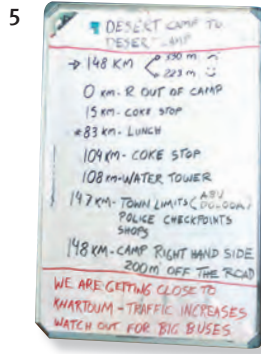 5
DESERT CAMP TO
DESERT CAMP
→ 148 KM
350 m
223 m
0 km - R OUT OF CAMP
15 km - COKE STOP
*83 km - LUNCH
104 km - COKE STOP
108 km - WATER TOWER
147 km - TOWN LIMITS (ABU
POLICE CHECKPOINTS
SHOPS
148 km - CAMP RIGHT HAND SIDE
200m OFF THE ROAD
WE ARE GETTING CLOSE TO
KHARTOUM - TRAFFIC INCREASES
WATCH OUT FOR BIG BUSES